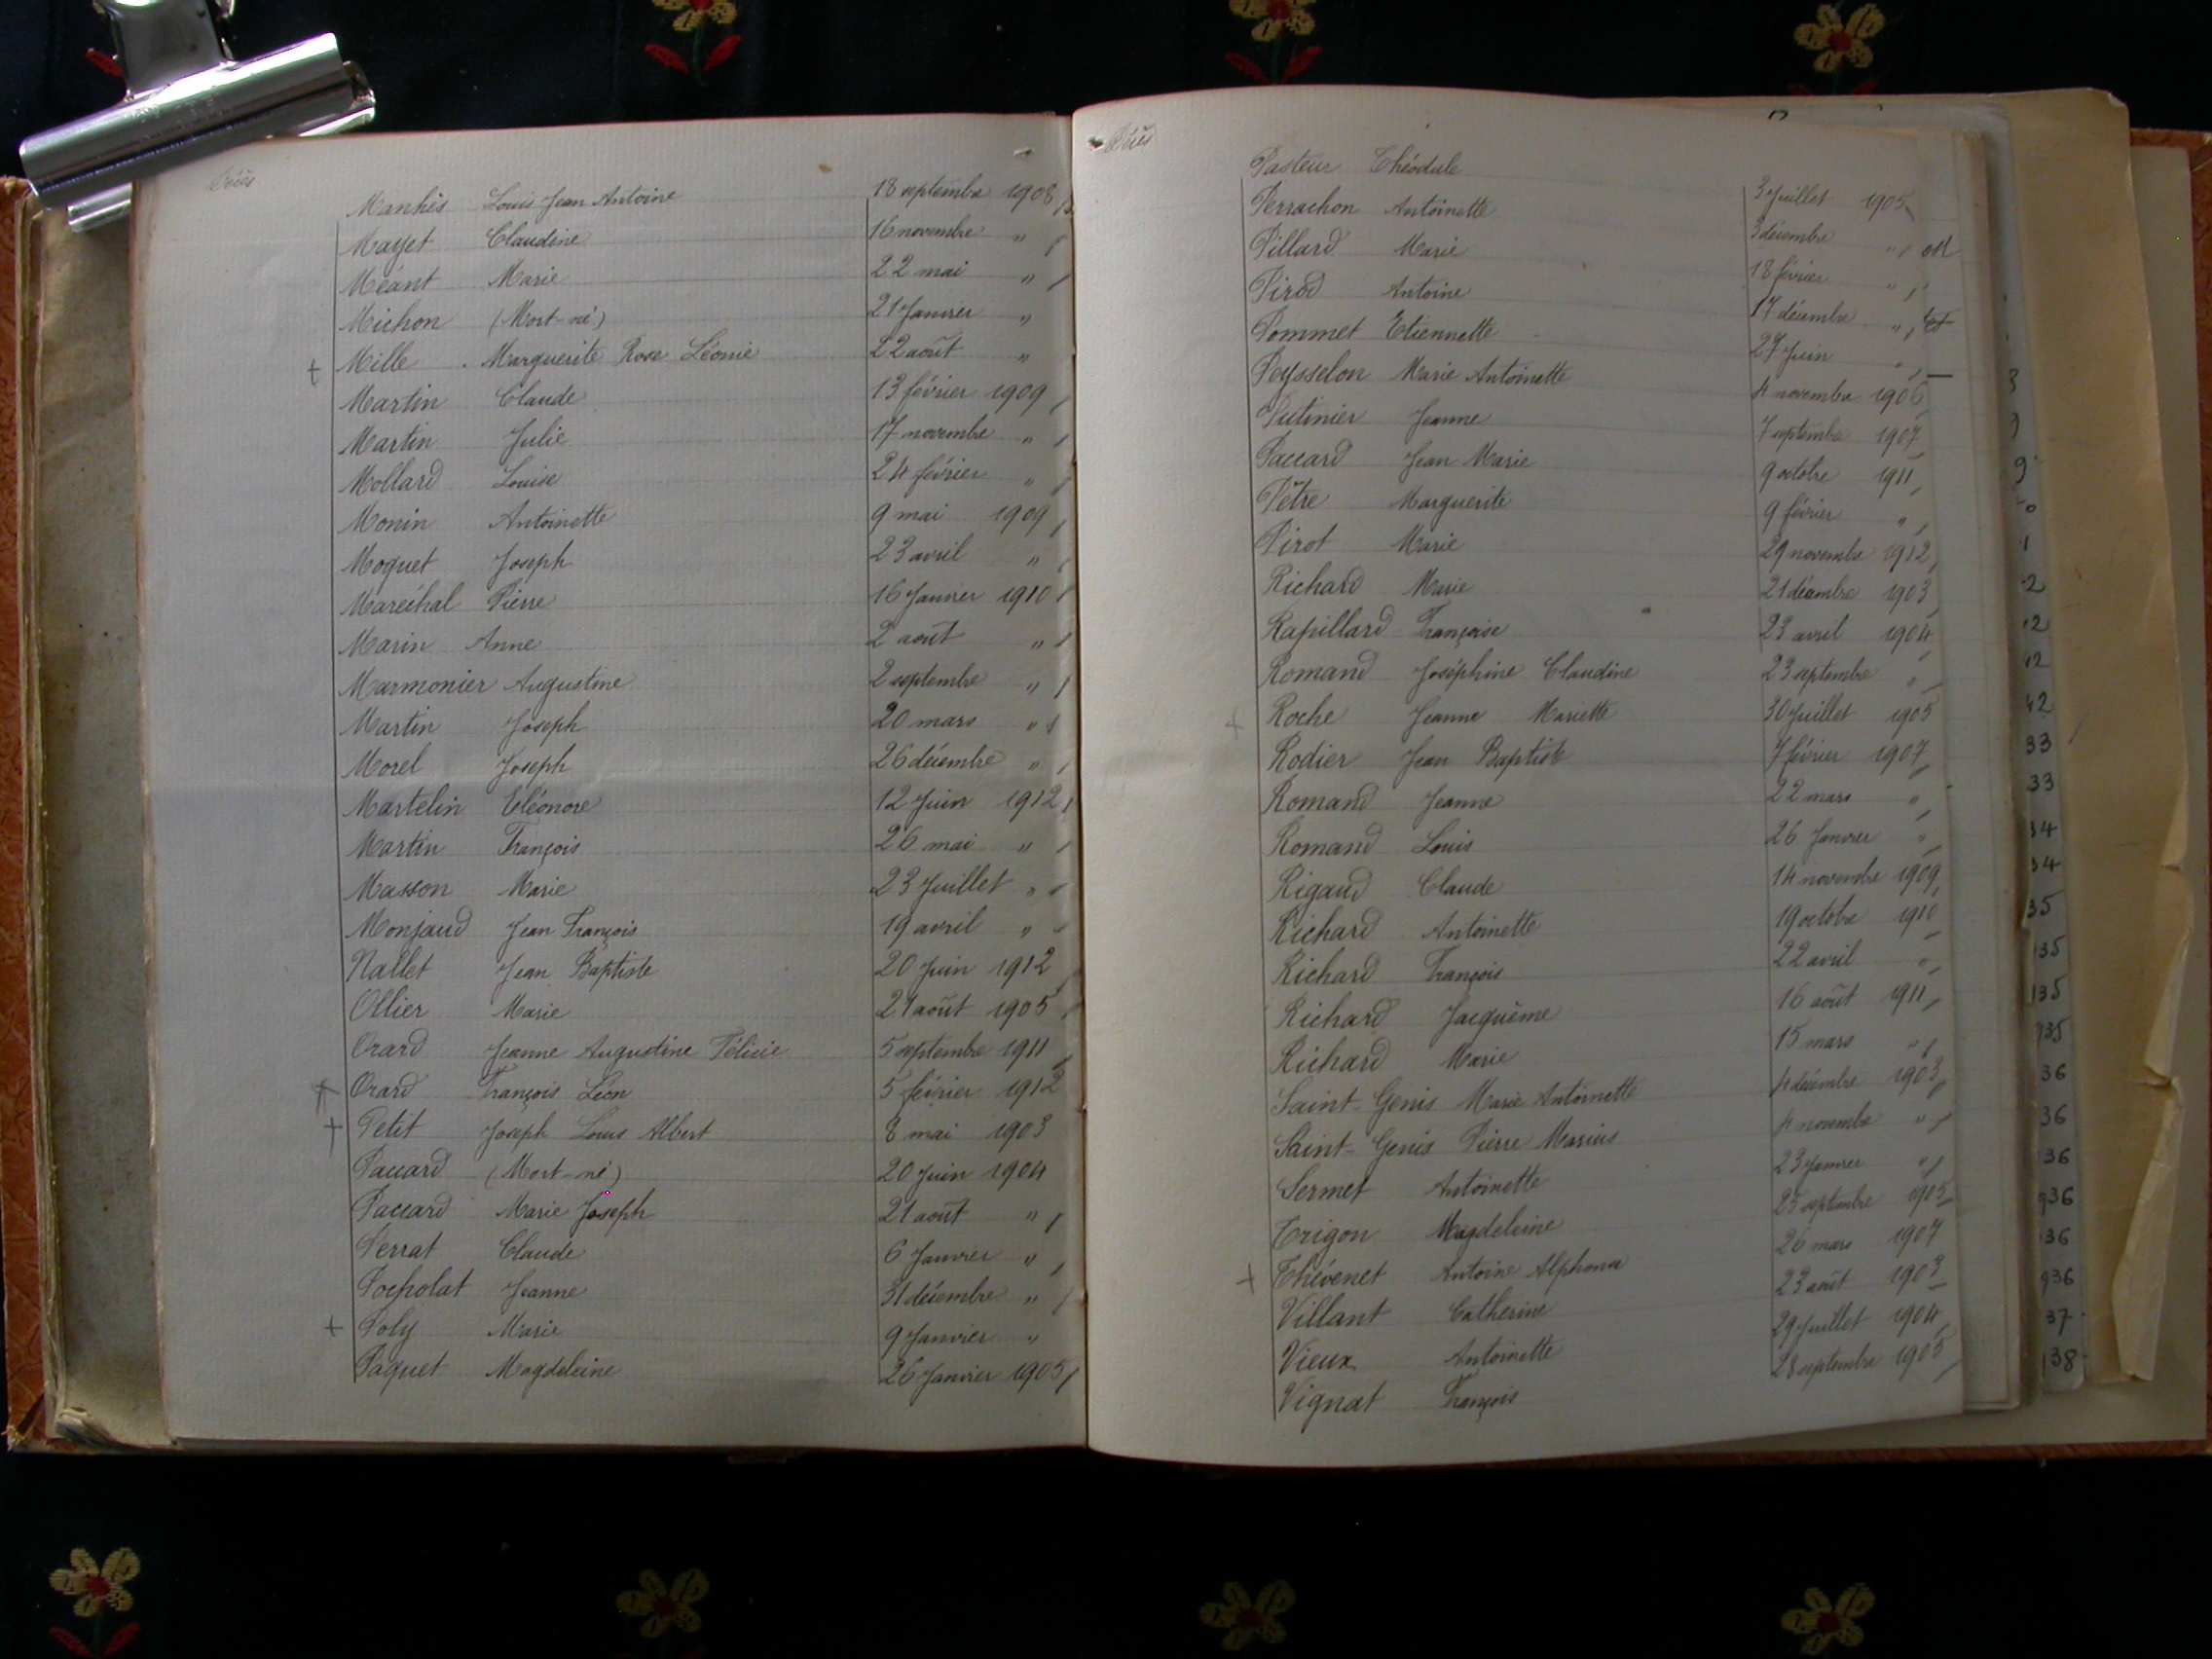 Décès
Manhès Louis Jean Antoine 18 septembre 1908
Mayet Claudine 16 novembre "
Méant Marie 22 mai "
Michon (Mort-né) 21 Janvier "
+ Mille Marguerite Rose Léonie 22 août "
Martin Claude 13 février 1909
Martin Julie 17 novembre "
Mollard Louise 24 février "
Monin Antoinette 9 mai 1909
Moquet Joseph 23 avril "
Maréchal Pierre 16 Janvier 1910
Marin Anne 2 août "
Marmonier Augustine 2 septembre "
Martin Joseph 20 mars "
Morel Joseph 26 décembre "
Martelin Eléonore 12 Juin 1912
Martin François 26 mai "
Masson Marie 23 Juillet "
Monjaud Jean François 19 avril "
Nallet Jean Baptiste 20 Juin 1912
Ollier Marie 21 août 1905
Orard Jeanne Augustine Félicie 5 septembre 1911
+ Orard François Léon 5 février 1912
+ Petit Joseph Louis Albert 8 mai 1903
Paccard (Mort-né) 20 Juin 1904
Paccard Marie Joseph 21 août "
Perrat Claude 6 Janvier "
Pocholat Jeanne 31 décembre "
+ Poly Marie 9 Janvier "
Paquet Magdeleine 26 Janvier 1905
Décès
Pasteur Théodule 3 Juillet 1905
Perrachon Antoinette 3 décembre "
Pillard Marie 18 février "
Pirod Antoine 17 décembre "
Pommet Etiennette 27 Juin "
Peysselon Marie Antoinette 4 novembre 1906
Putinier Jeanne 7 septembre 1907
Paccard Jean Marie 9 octobre 1911
Pètre Marguerite 9 février "
Pirot Marie 29 novembre 1912
Richard Marie 21 décembre 1903
Rapillard Françoise 23 avril 1904
Romand Joséphine Claudine 23 septembre "
+ Roche Jeanne Mariette 30 Juillet 1905
Rodier Jean Baptiste 7 février 1907
Romand Jeanne 22 mars "
Romand Louis 26 Janvier "
Rigaud Claude 14 novembre 1909
Richard Antoinette 19 octobre 1910
Richard François 22 avril "
Richard Jacquème 16 août 1911
Richard Marie 15 mars "
Saint-Genis Marie Antoinette 4 décembre 1903
Saint-Genis Pierre Marius 4 novembre "
Sermet Antoinette 23 Janvier "
Trigon Magdeleine 25 septembre 1905
+ Thévenet Antoine Alphonse 26 mars 1907
Villant Catherine 23 août 1903
Vieux Antoinette 29 Juillet 1904
Vignat François 28 septembre 1905
9
2
12
12
42
33
33
34
34
35
135
135
935
36
36
36
936
36
936
37
138